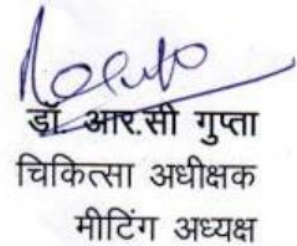 डॉ. आर.सी गुप्ता
चिकित्सा अधीक्षक
मीटिंग अध्यक्ष